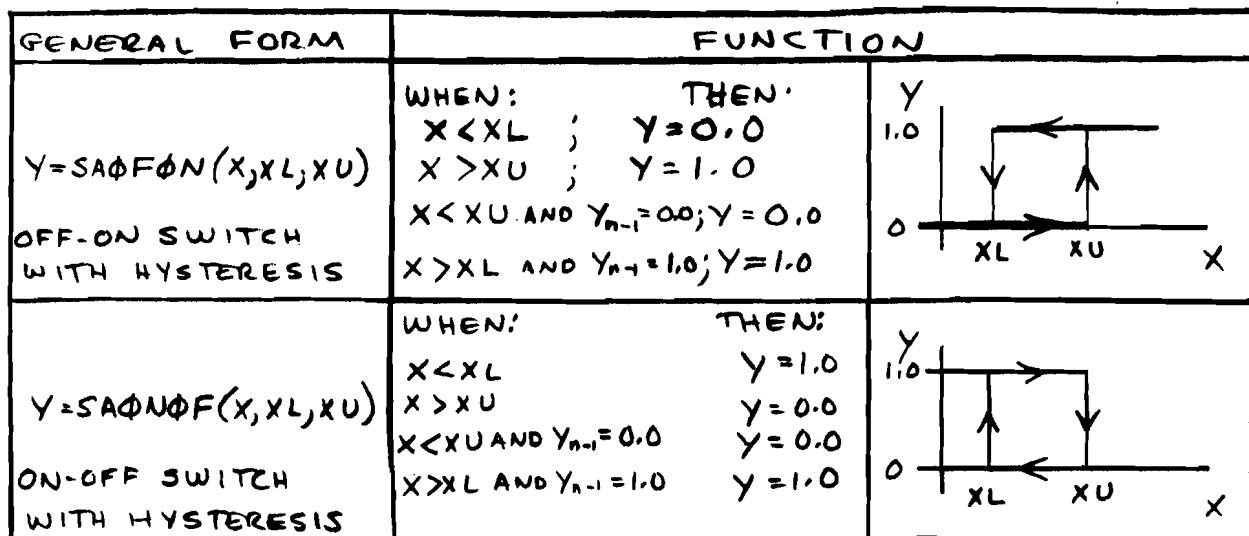 GENERAL FORM
FUNCTION
Y=SAΦFΦN(X,XL,XU)
OFF-ON SWITCH
WITH HYSTERESIS
WHEN: THEN:
X<XL ; Y=0.0
X>XU ; Y=1.0
X<XU AND Yn-1=0.0; Y=0.0
X>XL AND Yn-1=1.0; Y=1.0
Y
1.0
0
XL XU X
Y=SAΦNΦF(X,XL,XU)
ON-OFF SWITCH
WITH HYSTERESIS
WHEN: THEN:
X<XL Y=1.0
X>XU Y=0.0
X<XU AND Yn-1=0.0 Y=0.0
X>XL AND Yn-1=1.0 Y=1.0
Y
1.0
0
XL XU X